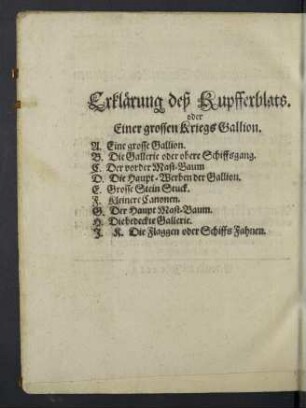 Erklärung deß Kupfferblats.
oder
Einer grossen Kriegs Gallion.
A. Eine grosse Gallion.
B. Die Gallerie oder obere Schiffsgang.
C. Der vorder Mast-Baum
D. Die Haupt-Werben der Gallion.
E. Grosse Stein Stuck.
F. Kleinere Canonen.
G. Der Haupt Mast-Baum.
H. Die bedeckte Gallerie.
J. K. Die Flaggen oder Schiffs Fahnen.